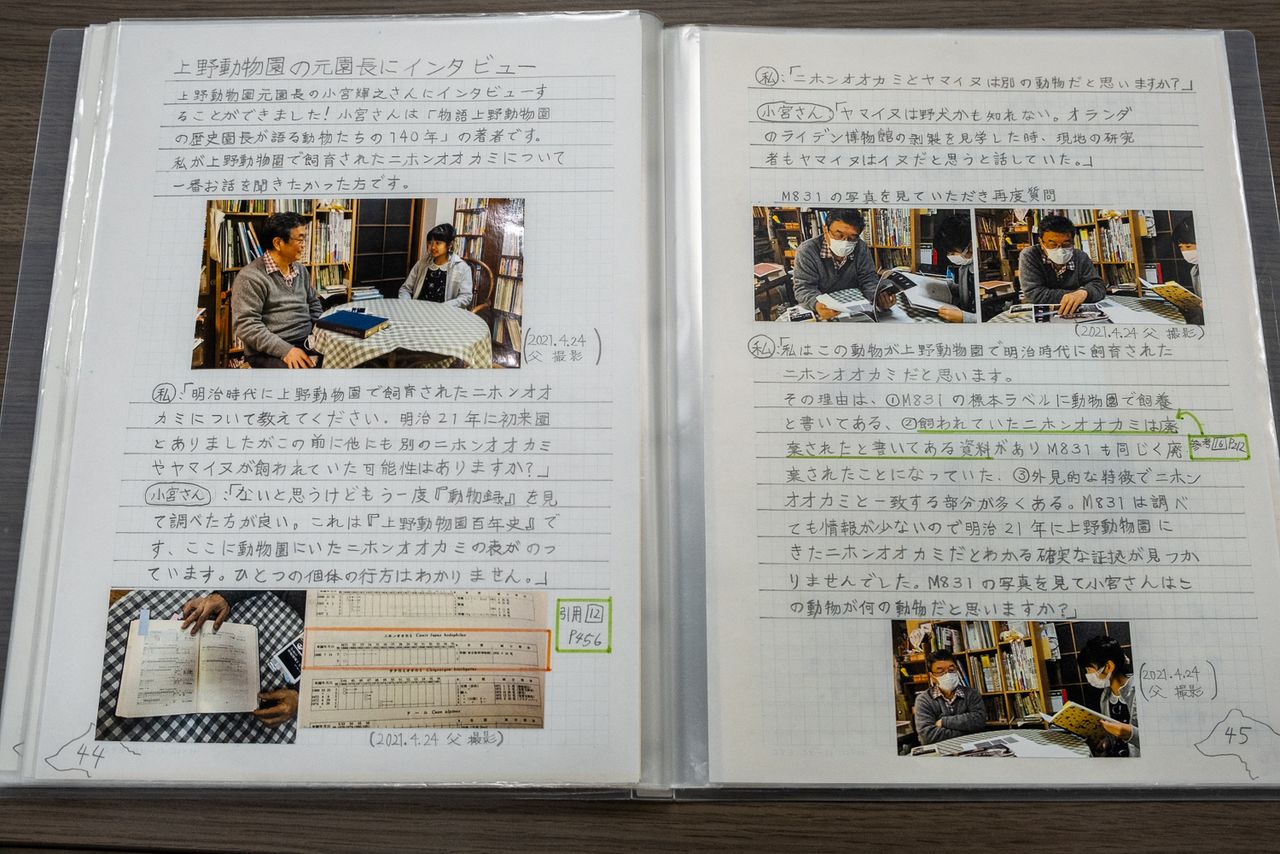 上野動物園の元園長にインタビュー
上野動物園元園長の小宮輝之さんにインタビューす
ることができました！小宮さんは「物語上野動物園
の歴史園長が語る動物たちの140年」の著者です。
私が上野動物園で飼育されたニホンオオカミについて
一番お話を聞きたかった方です。
(2021.4.24
父 撮影)
私:「明治時代に上野動物園で飼育されたニホンオオ
カミについて教えてください。明治21年に初来園
とありましたがこの前に他にも別のニホンオオカミ
やヤマイヌが飼われていた可能性はありますか？」
小宮さん:「ないと思うけどもう一度『動物録』を見
て調べた方が良い。これは『上野動物園百年史』で
す、ここに動物園にいたニホンオオカミの表がのっ
ています。ひとつの個体の行方はわかりません。」
引用[12]
P456
ニホンオオカミ Canis lupus hodophilax
ドール Cuon alpinus
(2021.4.24 父 撮影)
44
私:「ニホンオオカミとヤマイヌは別の動物だと思いますか？」
小宮さん「ヤマイヌは野犬かも知れない。オランダ
のライデン博物館の剥製を見学した時、現地の研究
者もヤマイヌはイヌだと思うと話していた。」
M831の写真を見ていただき再度質問
(2021.4.24 父 撮影)
私:「私はこの動物が上野動物園で明治時代に飼育された
ニホンオオカミだと思います。
その理由は、①M831の標本ラベルに動物園で飼養
と書いてある、②飼われていたニホンオオカミは廃
棄されたと書いてある資料がありM831も同じく廃
参考[16]P212
棄されたことになっていた、③外見的な特徴でニホン
オオカミと一致する部分が多くある。M831は調べ
ても情報が少ないので明治21年に上野動物園に
きたニホンオオカミだとわかる確実な証拠が見つか
りませんでした。M831の写真を見て小宮さんはこ
の動物が何の動物だと思いますか？」
(2021.4.24
父 撮影)
45